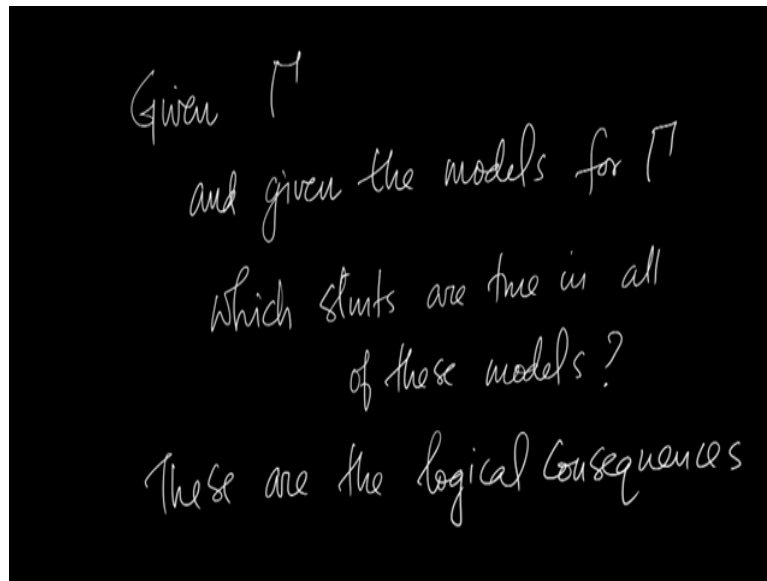 Given Γ
and given the models for Γ
which stmts are true in all
of these models?
These are the logical consequences